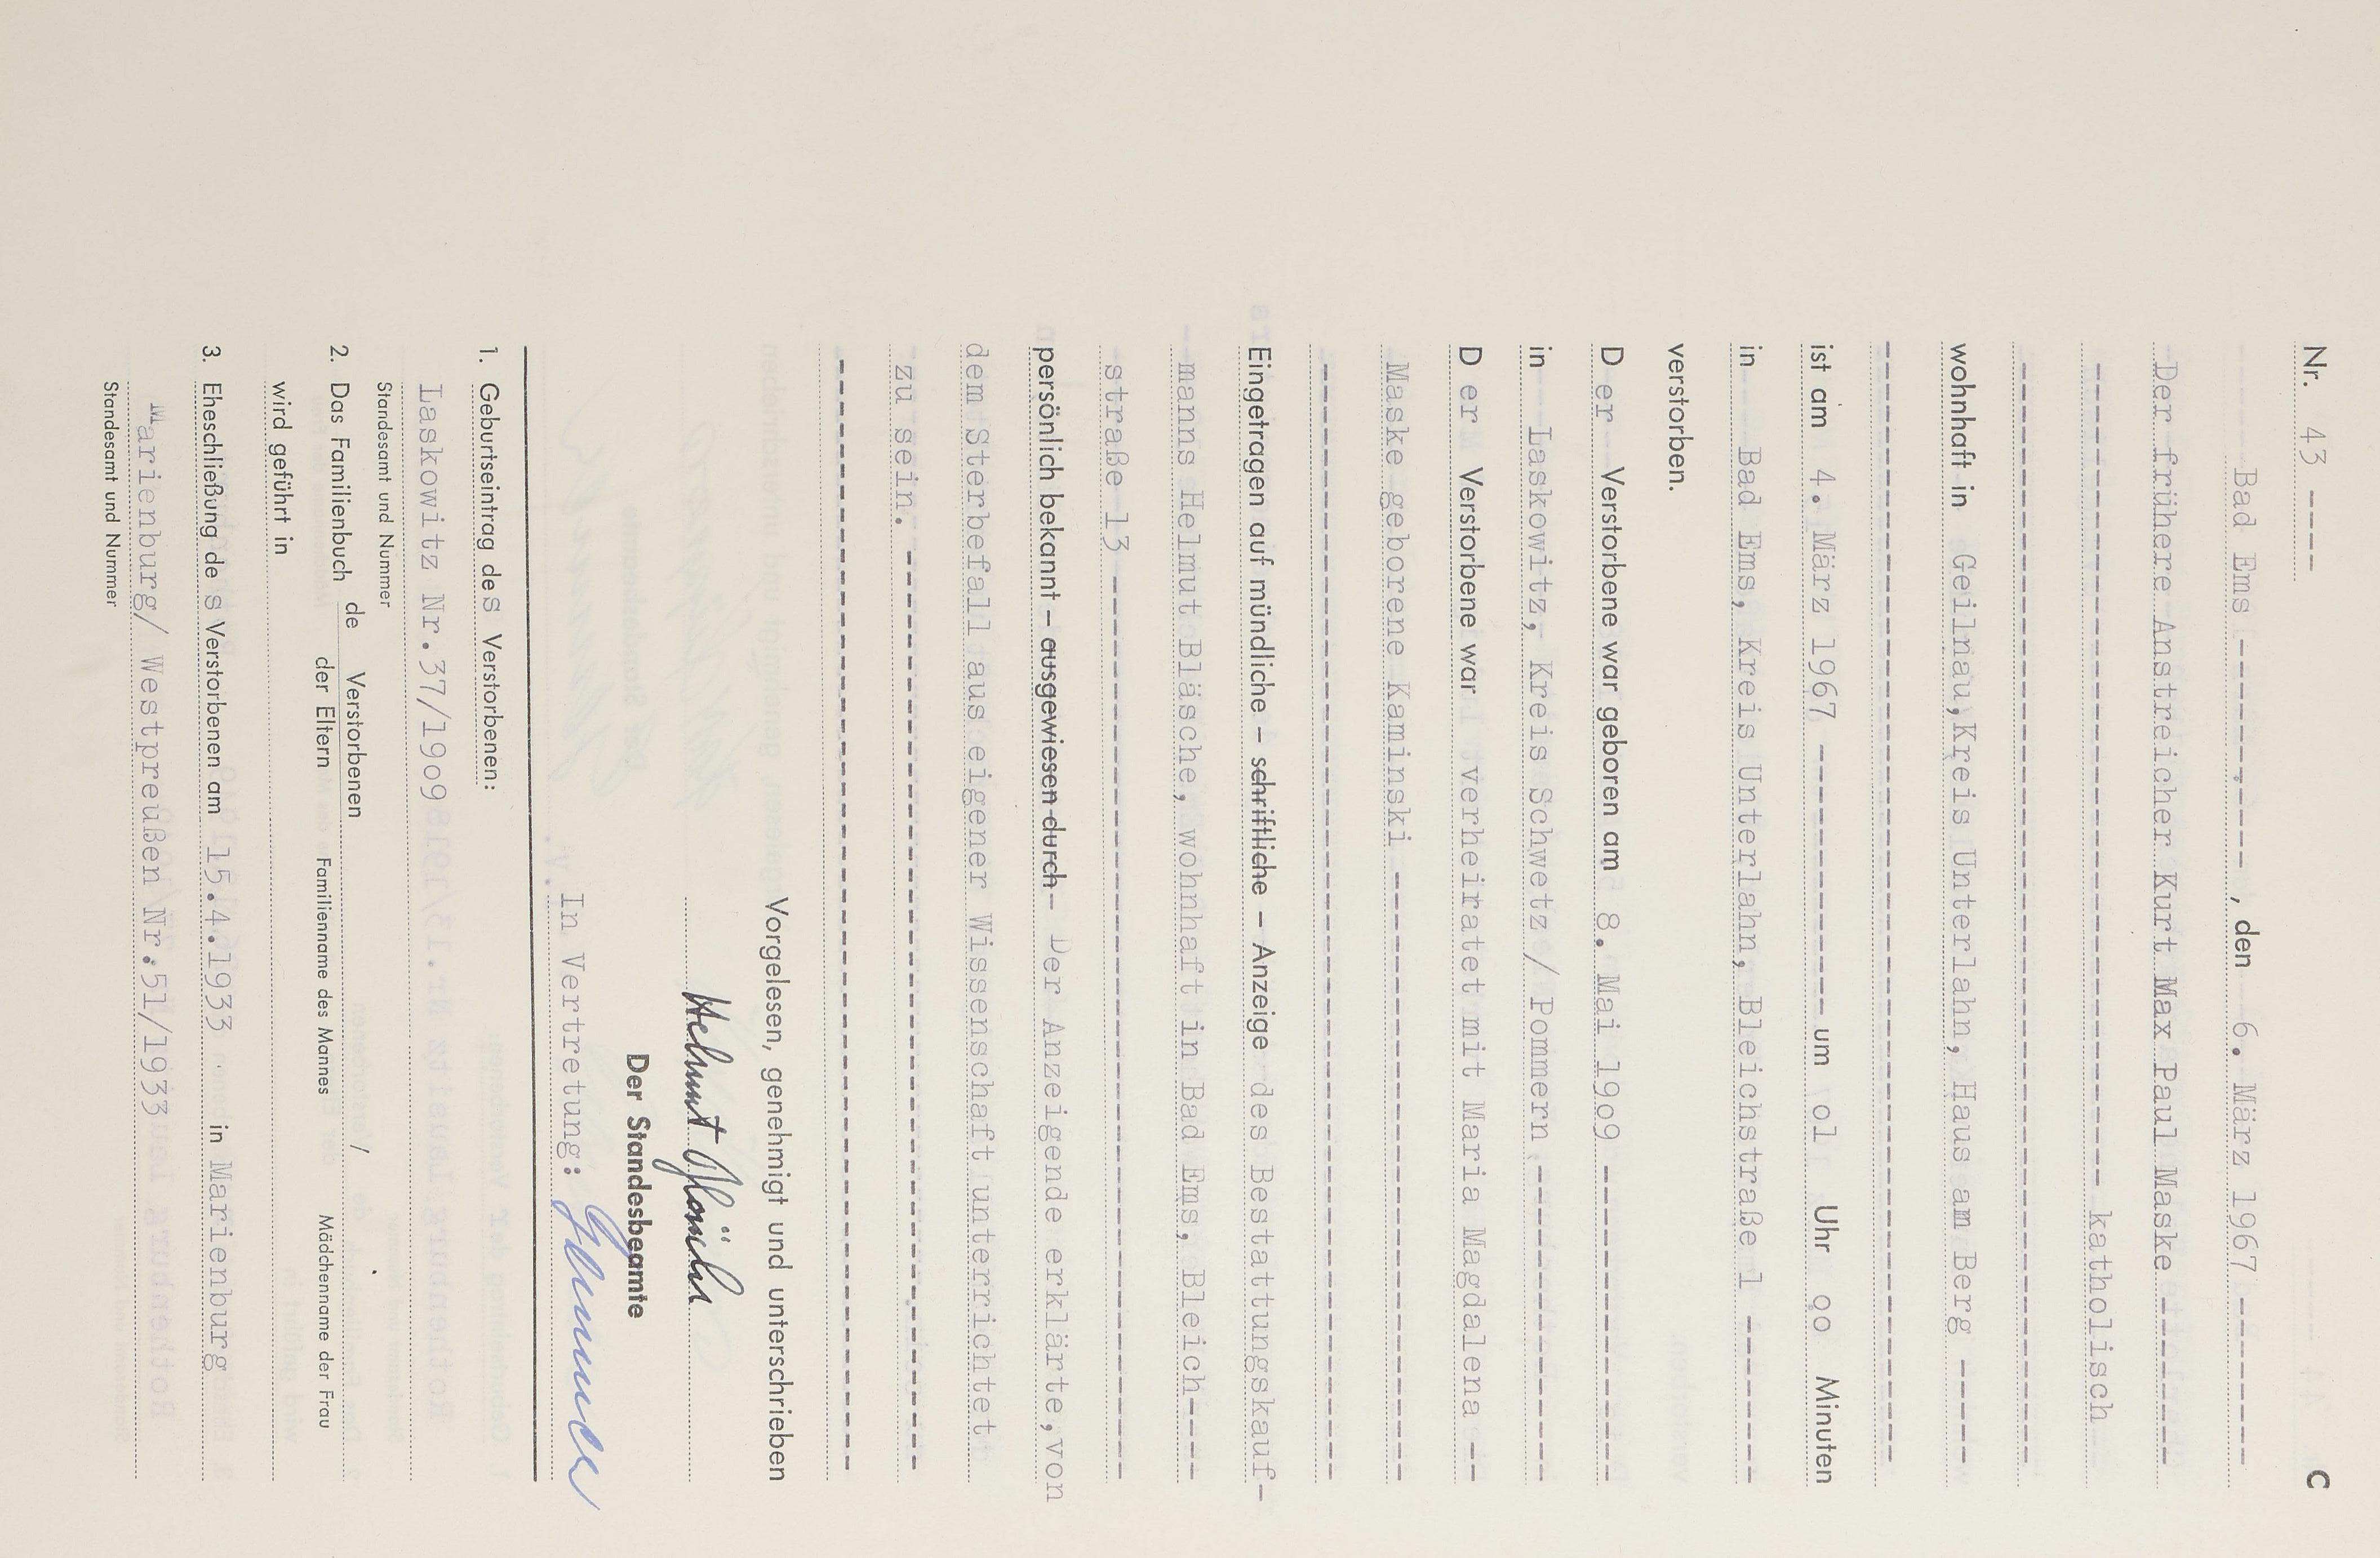 C
Nr. 43 ----
Bad Ems ----------, den 6. März 1967 --------
Der frühere Anstreicher Kurt Max Paul Maske --------
---------------------------------------- katholisch
wohnhaft in Geilnau, Kreis Unterlahn, Haus am Berg -----
ist am 4. März 1967 ------------ um o1 Uhr oo Minuten
in Bad Ems, Kreis Unterlahn, Bleichstraße 1 -------
verstorben.
D er Verstorbene war geboren am 8. Mai 19o9 --------------
in Laskowitz, Kreis Schwetz / Pommern --------------
D er Verstorbene war verheiratet mit Maria Magdalena --
Maske geborene Kaminski ---------------------------
Eingetragen auf mündliche – schriftliche – Anzeige des Bestattungskauf-
manns Helmut Bläsche, wohnhaft in Bad Ems, Bleich----
straße 13 ----------------------------------------
persönlich bekannt – ausgewiesen durch – Der Anzeigende erklärte, von
dem Sterbefall aus eigener Wissenschaft unterrichtet
zu sein. ----------------------------------------
Vorgelesen, genehmigt und unterschrieben
Helmut Bläsche
Der Standesbeamte
In Vertretung:
1. Geburtseintrag des Verstorbenen:
Laskowitz Nr.37/19o9
Standesamt und Nummer
2. Das Familienbuch de Verstorbenen / der Eltern
Familienname des Mannes / Mädchenname der Frau
wird geführt in
3. Eheschließung de s Verstorbenen am 15.4.1933 in Marienburg
Marienburg/ Westpreußen Nr.51/1933
Standesamt und Nummer